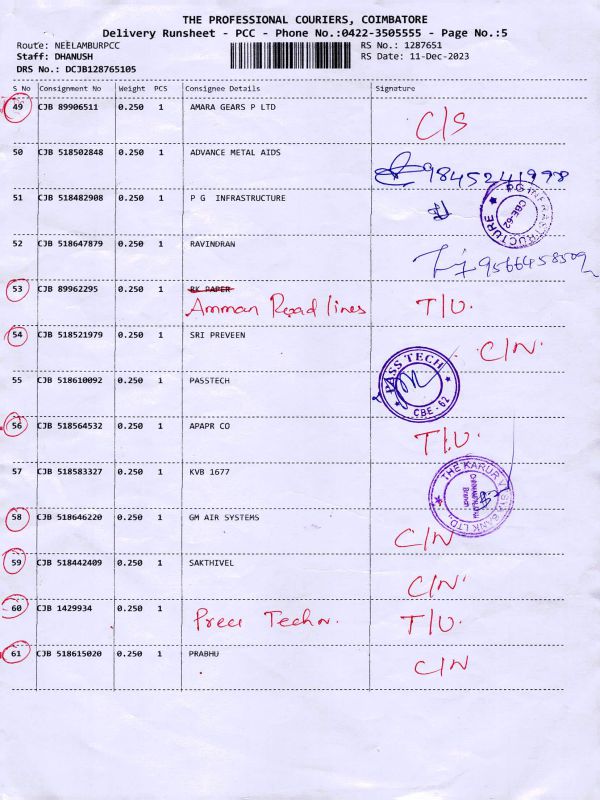 THE PROFESSIONAL COURIERS, COIMBATORE
Delivery Runsheet - PCC - Phone No.:0422-3505555 - Page No.:5
Route: NEELAMBURPCC RS No.: 1287651
Staff: DHANUSH RS Date: 11-Dec-2023
DRS No.: DCJB128765105
S No Consignment No Weight PCS Consignee Details Signature
49 CJB 89906511 0.250 1 AMARA GEARS P LTD
C/S
50 CJB 518502848 0.250 1 ADVANCE METAL AIDS
9845241998
51 CJB 518482908 0.250 1 P G INFRASTRUCTURE
PG INFRASTRUCTURE CBE-62
52 CJB 518647879 0.250 1 RAVINDRAN
9566458509
53 CJB 89962295 0.250 1 RK PAPER
Amman Road lines T/U.
54 CJB 518521979 0.250 1 SRI PREVEEN
C/N.
55 CJB 518610092 0.250 1 PASSTECH
PASS TECH CBE-62
56 CJB 518564532 0.250 1 APAPR CO
T/U.
57 CJB 518583327 0.250 1 KVB 1677
THE KARUR VYSYA BANK LTD.,
58 CJB 518646220 0.250 1 GM AIR SYSTEMS
C/N
59 CJB 518442409 0.250 1 SAKTHIVEL
C/N.
60 CJB 1429934 0.250 1
Preci Techn. T/U.
61 CJB 518615020 0.250 1 PRABHU
C/N